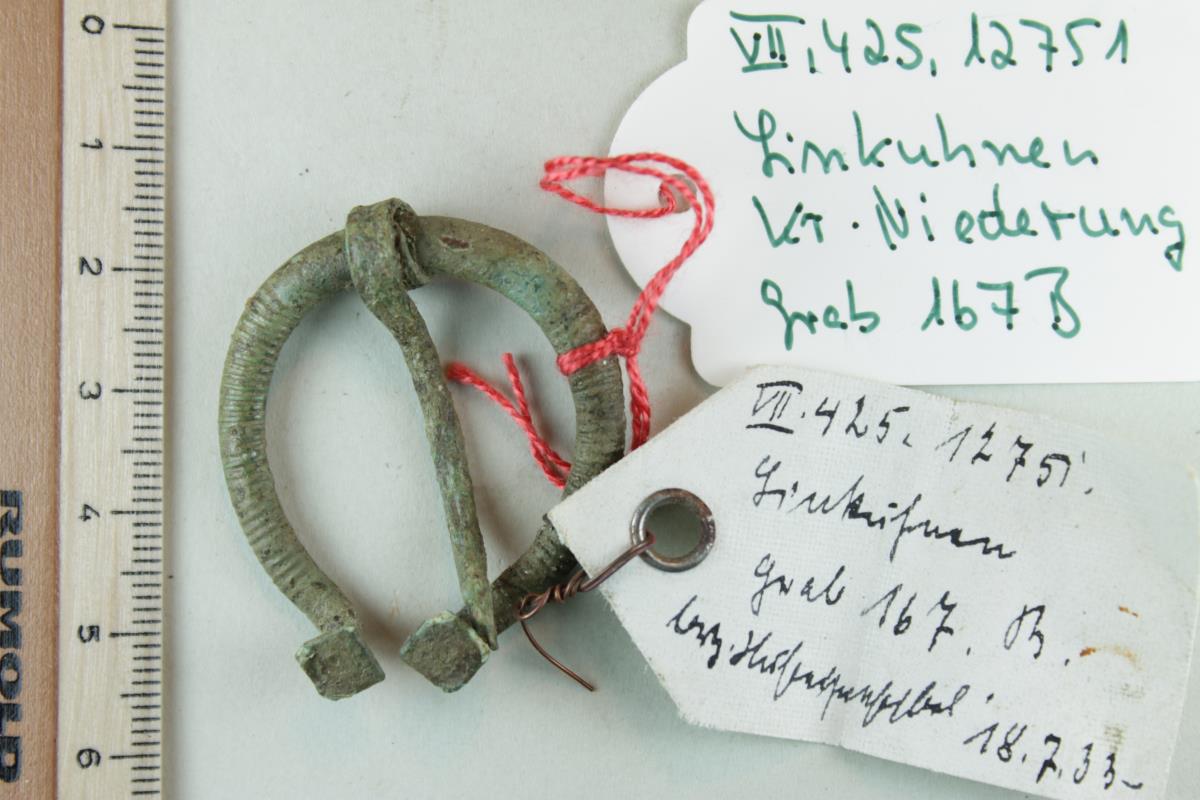 VII, 425, 12751
Linkuhnen
Kr. Niederung
Grab 167 B
VII. 425. 12751.
Linkuhnen
Grab 167. B.
18.7.33
0
1
2
3
4
5
6
RUMOLD